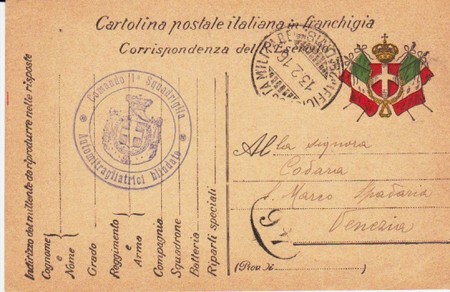 Cartolina postale italiana in franchigia
Corrispondenza del R. Esercito
13.2.16
Comando 11ª Squadriglia
Automitragliatrici blindate
Alla signora
Codaria
S. Marco Spadaria
Venezia
(Prov. di
Indirizzo del mittente da riprodurre nelle risposte
Cognome e Nome
Grado
Reggimento e Arma
Compagnia
Squadrone
Batteria
Riparti speciali